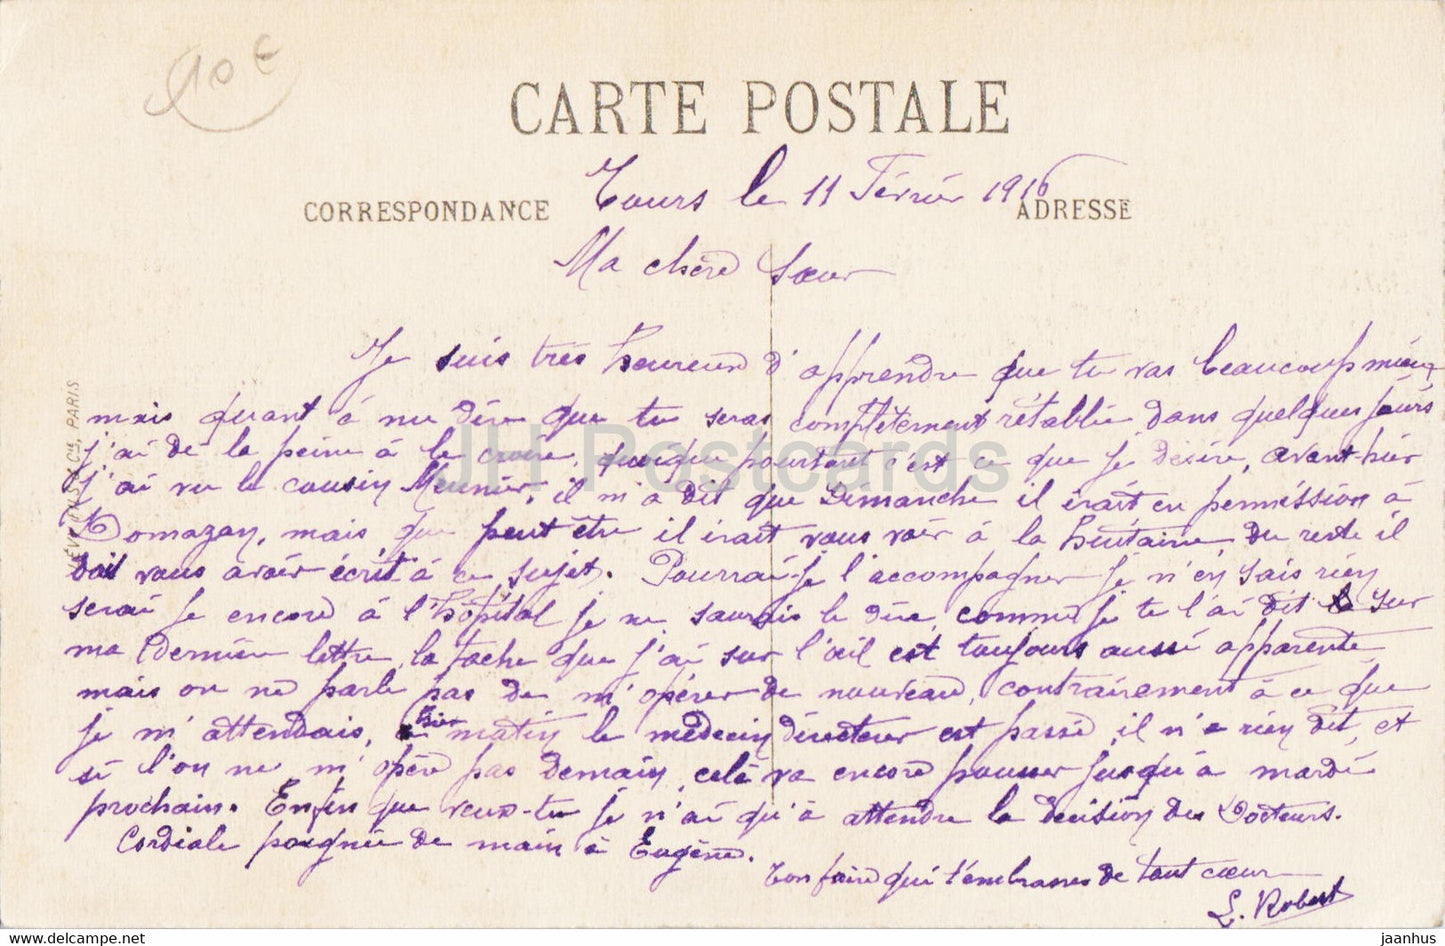 10 €
CARTE POSTALE
CORRESPONDANCE
ADRESSE
Tours le 11 Février 1916
Ma chère Sœur
Je suis très heureux d'apprendre que tu vas beaucoup mieux
mais quant à me dire que tu seras complètement rétablie dans quelques jours
j'ai de la peine à le croire, quoique pourtant c'est ce que je désire, avant-hier
j'ai vu le cousin Meunier, il m'a dit que Dimanche il irait en permission à
Domazan, mais que peut être il irait vous voir à la huitaine, du reste il
doit vous avoir écrit à ce sujet. Pourrai-je l'accompagner je n'en sais rien
serai je encore à l'hôpital je ne saurais le dire, comme je te l'ai dit sur
ma dernière lettre, la tache que j'ai sur l'œil est toujours aussi apparente
mais on ne parle pas de m'opérer de nouveau, contrairement à ce que
je m'attendais, hier matin le médecin directeur est passé il n'a rien dit, et
si l'on ne m'opère pas demain, celà va encore pousser jusqu'à mardi
prochain. Enfin que veux-tu je n'ai qu'à attendre la décision des Docteurs.
Cordiale poignée de main à Eugène.
Ton frère qui t'embrasses de tout cœur
L. Robert
CIE, PARIS
JH Postcards
www.delcampe.net
jaanhus